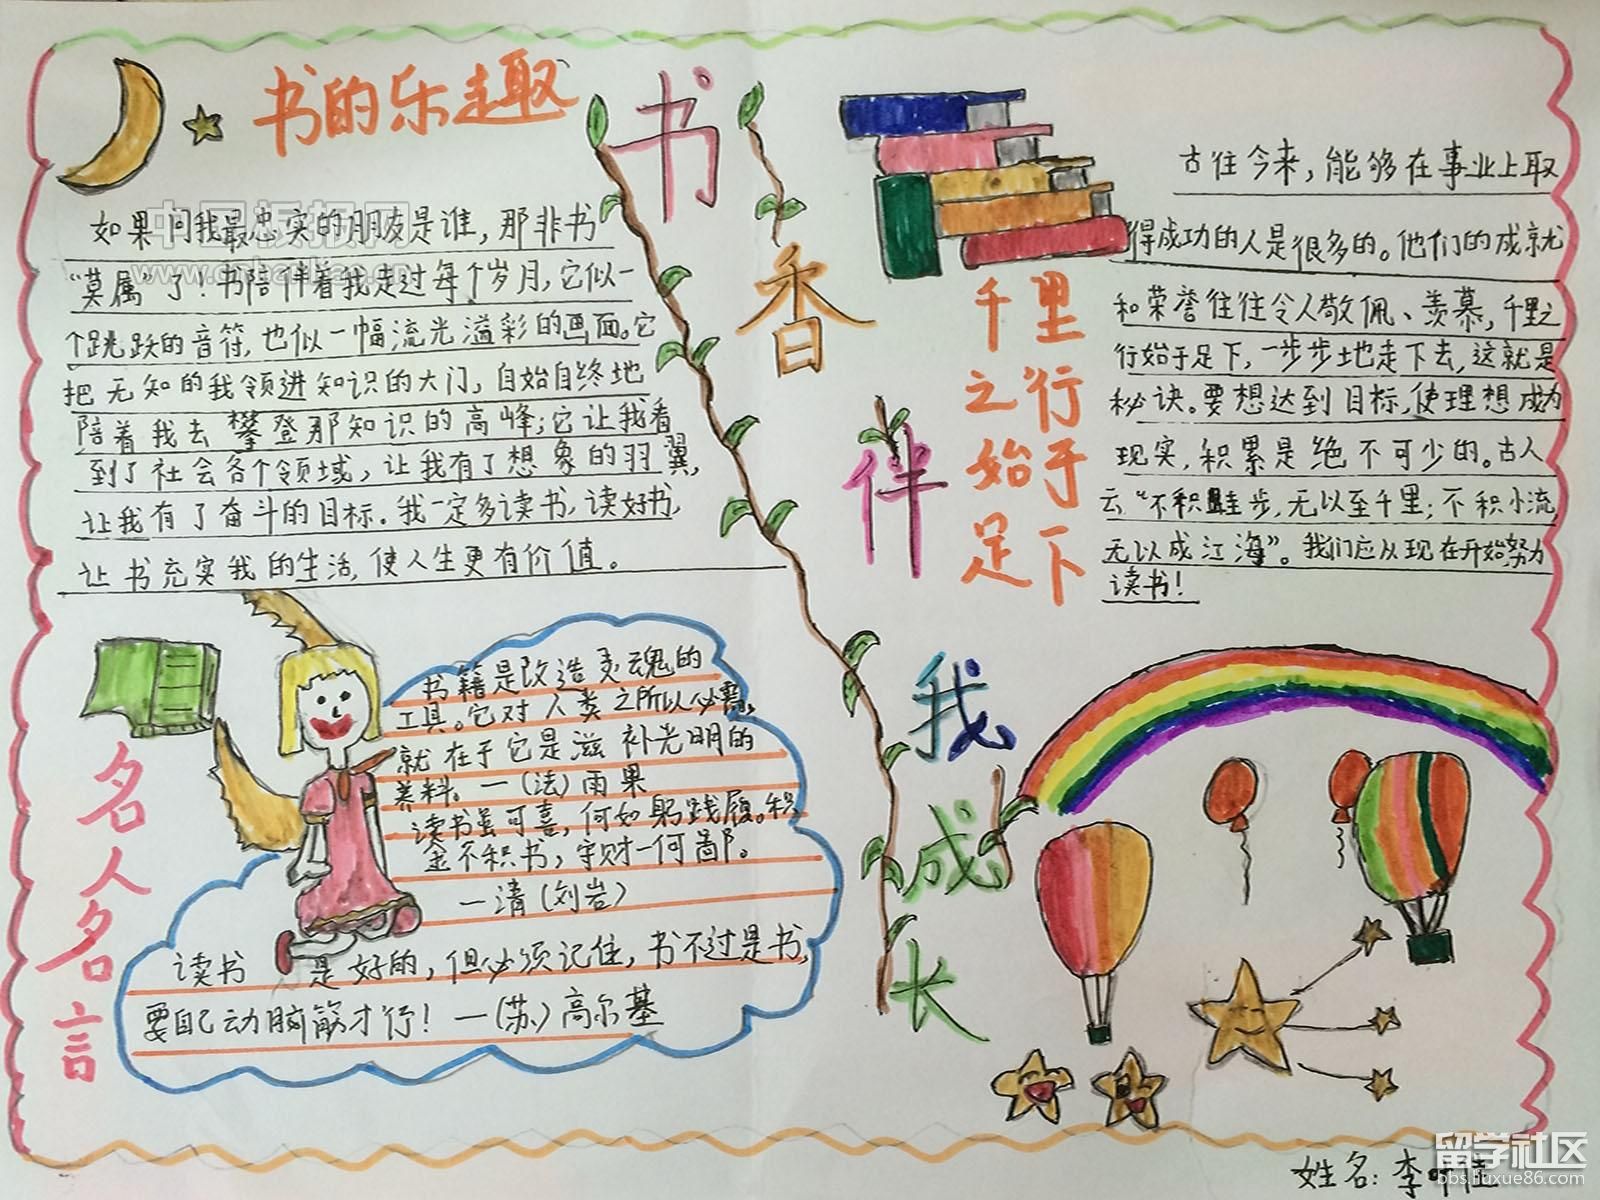 书的乐趣
如果问我最忠实的朋友是谁，那非书
“莫属”了！书陪伴着我走过每个岁月，它似一
个跳跃的音符，也似一幅流光溢彩的画面。它
把无知的我领进知识的大门，自始自终地
陪着我去攀登那知识的高峰；它让我看
到了社会各个领域，让我有了想象的羽翼，
让我有了奋斗的目标。我一定多读书，读好书，
让书充实我的生活，使人生更有价值。
书
香
伴
我
成
长
千里
之行
始于
足下
古往今来，能够在事业上取
得成功的人是很多的。他们的成就
和荣誉往往令人敬佩、羡慕，千里之
行始于足下，一步步地走下去，这就是
秘诀。要想达到目标，使理想成为
现实，积累是绝不可少的。古人
云“不积跬步，无以至千里；不积小流
无以成江海”。我们应从现在开始，努力
读书！
名人名言
书籍是改造灵魂的
工具。它对人类之所以必需，
就在于它是滋补光明的
养料。—（法）雨果
读书虽可喜，何如躬践履。积
金不积书，守财一何鄙。
—清（刘岩）
读书是好的，但必须记住，书不过是书，
要自己动脑筋才行！—（苏）高尔基
姓名：李叶佳
中国板报网
www.cnbanbao.cn
留学社区
bbs.liuxue86.com